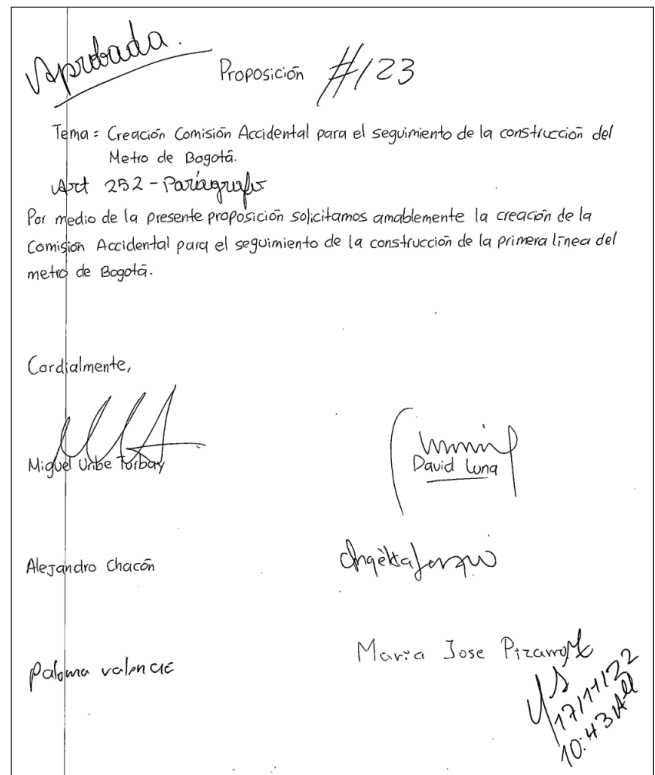 Aprobada.
Proposición #123
Tema = Creación Comisión Accidental para el seguimiento de la construcción del
Metro de Bogotá.
Art 252 - Parágrafo
Por medio de la presente proposición solicitamos amablemente la creación de la
Comisión Accidental para el seguimiento de la construcción de la primera línea del
metro de Bogotá.
Cordialmente,
Miguel Uribe Turbay
David Luna
Alejandro Chacón
Paloma valencia
Maria Jose Pizarro
17/11/22
10:43 AM